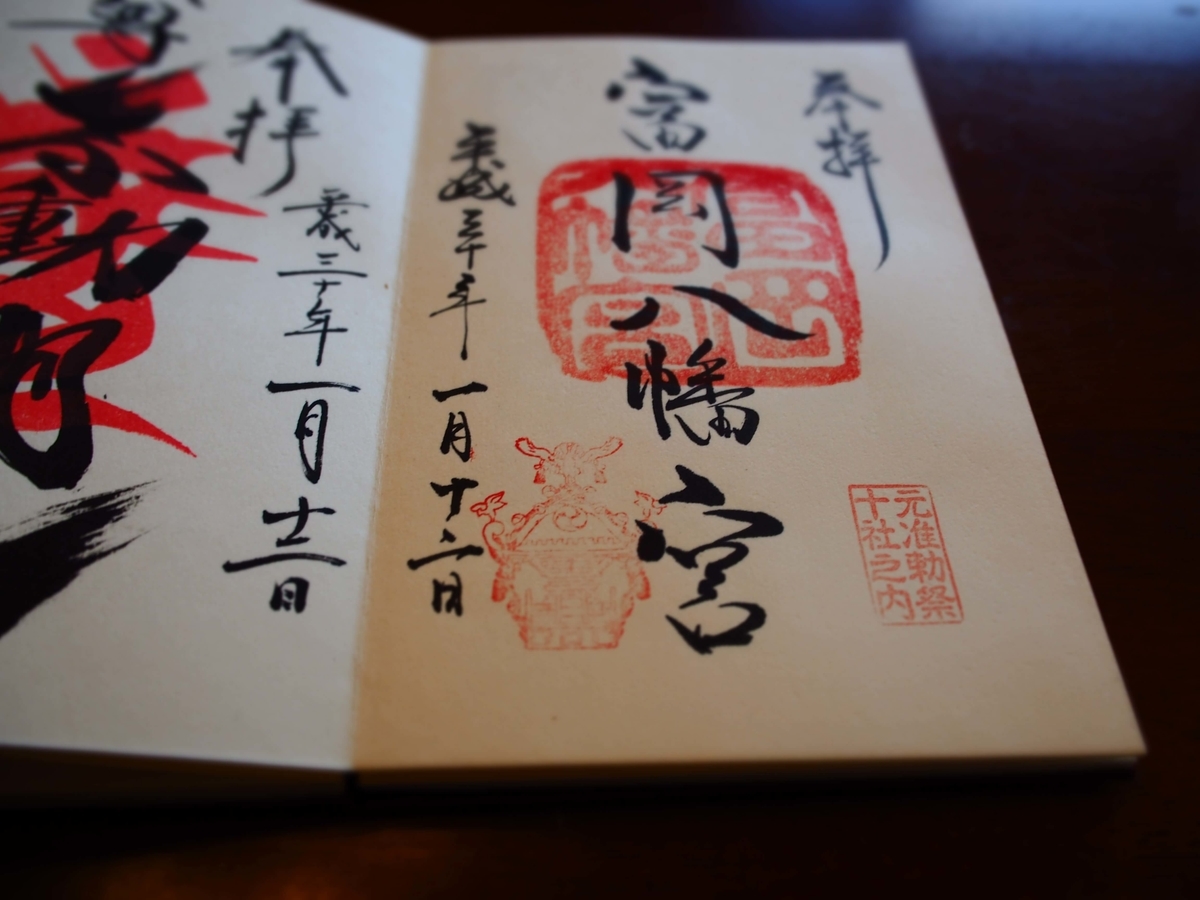 奉拝
富岡八幡宮
元准勅祭
十社之内
平成三十年一月十二日
奉拝
平成三十年一月十二日